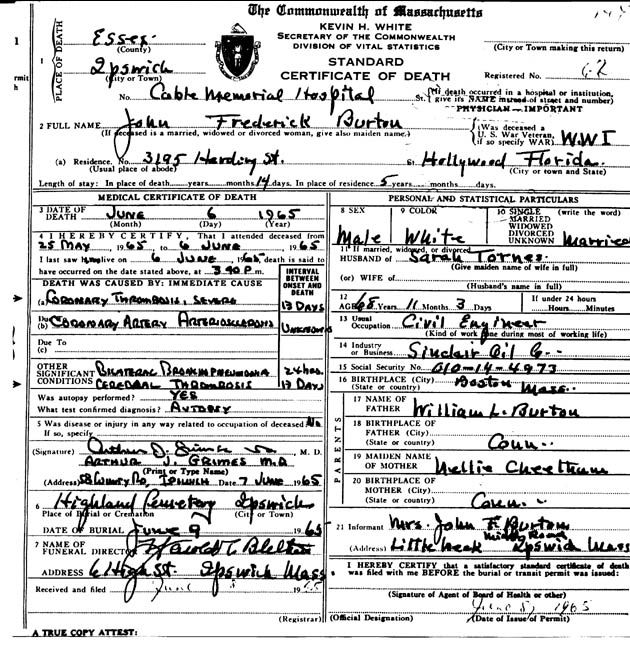 The Commonwealth of Massachusetts
KEVIN H. WHITE
SECRETARY OF THE COMMONWEALTH
DIVISION OF VITAL STATISTICS
STANDARD
CERTIFICATE OF DEATH
PLACE OF DEATH
1
Essex
(County)
Ipswich
(City or Town)
(City or Town making this return)
Registered No. 62
No. Cable Memorial Hospital St. (If death occurred in a hospital or institution, give its NAME instead of street and number)
PHYSICIAN — IMPORTANT
2 FULL NAME John Frederick Burton
(If deceased is a married, widowed or divorced woman, give also maiden name.)
(Was deceased a U. S. War Veteran, if so specify WAR) WWI
(a) Residence. No. 3195 Harding St. St. Hollywood Florida
(Usual place of abode) (City or town and State)
Length of stay: In place of death years months 14 days. In place of residence 5 years months days.
MEDICAL CERTIFICATE OF DEATH
3 DATE OF DEATH June 6 1965
(Month) (Day) (Year)
4 I HEREBY CERTIFY, That I attended deceased from
25 MAY, 1965 to 6 JUNE, 1965
I last saw him alive on 6 JUNE, 1965 death is said to
have occurred on the date stated above, at 3.40 P.m.
INTERVAL BETWEEN ONSET AND DEATH
DEATH WAS CAUSED BY: IMMEDIATE CAUSE
(a) CORONARY THROMBOSIS, SEVERE 13 DAYS
Due To (b) CORONARY ARTERY ARTERIOSCLEROSIS UNKNOWN
Due To (c)
OTHER SIGNIFICANT CONDITIONS BILATERAL BRONCHOPNEUMONIA 24 hrs.
CEREBRAL THROMBOSIS 13 DAYS
Was autopsy performed? YES
What test confirmed diagnosis? AUTOPSY
5 Was disease or injury in any way related to occupation of deceased? No
If so, specify
(Signature) M. D.
ARTHUR J. GRIMES M.D.
(Print or Type Name)
(Address) Ipswich Date 7 JUNE 1965
6 Highland Cemetery Ipswich
Place of Burial or Cremation (City or Town)
DATE OF BURIAL June 9 1965
7 NAME OF FUNERAL DIRECTOR
ADDRESS 6 High St Ipswich Mass
Received and filed June 8 1965
(Registrar)
A TRUE COPY ATTEST:
PERSONAL AND STATISTICAL PARTICULARS
8 SEX 9 COLOR 10 SINGLE MARRIED WIDOWED DIVORCED UNKNOWN (write the word)
Male White Married
11 If married, widowed, or divorced
HUSBAND OF Sarah Tornes
(Give maiden name of wife in full)
(or) WIFE OF
(Husband's name in full)
12 AGE 68 Years 11 Months 3 Days If under 24 hours Hours Minutes
13 Usual Occupation Civil Engineer
(Kind of work done during most of working life)
14 Industry or Business Sinclair Oil Co.
15 Social Security No. 010-14-4973
16 BIRTHPLACE (City) Boston
(State or country) Mass.
PARENTS
17 NAME OF FATHER William L. Burton
18 BIRTHPLACE OF FATHER (City)
(State or country) Conn.
19 MAIDEN NAME OF MOTHER Nellie Cheethum
20 BIRTHPLACE OF MOTHER (City)
(State or country) Conn.
21 Informant Mrs. John F. Burton
(Address) Little Neck Middle Road Ipswich Mass
I HEREBY CERTIFY that a satisfactory standard certificate of death
was filed with me BEFORE the burial or transit permit was issued:
(Signature of Agent of Board of Health or other)
June 8, 1965
(Official Designation) (Date of Issue of Permit)